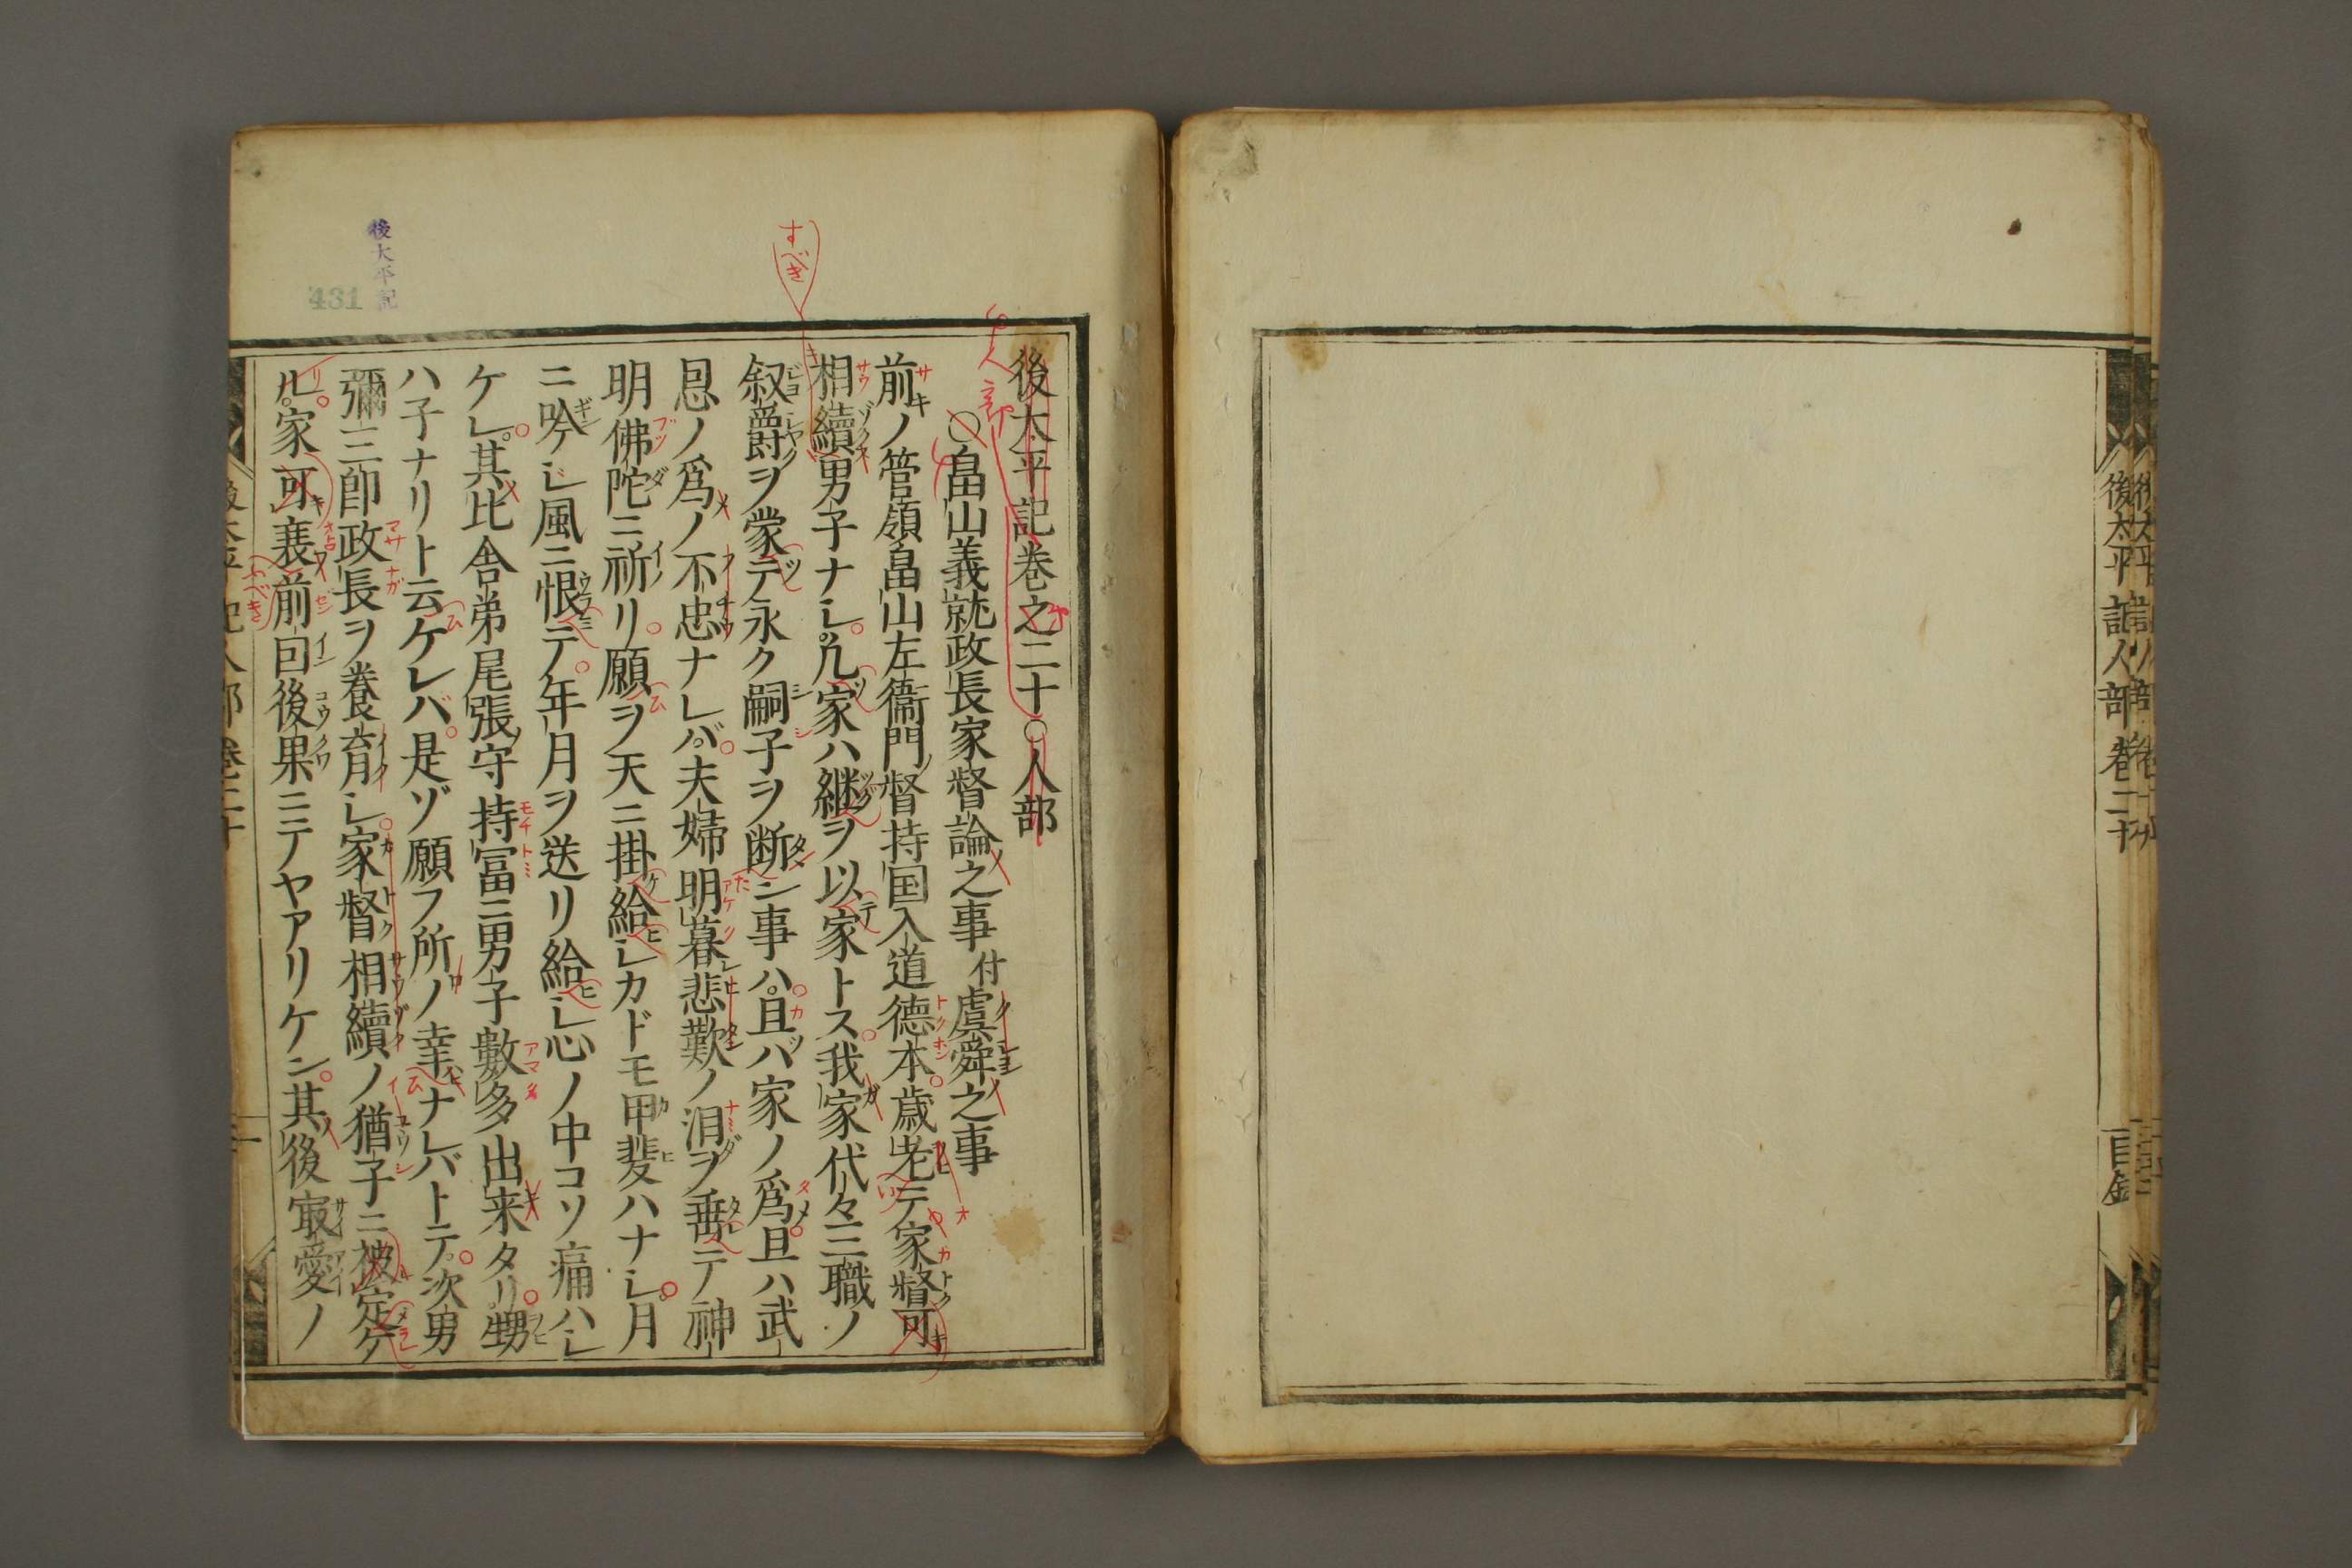 後太平記人部 巻二十 目録
後太平記巻之二十○人部
○畠山義就政長家督論之事 付虞舜之事
前ノ管領畠山左衞門督持国入道德本歳老テ家督可
相續男子ナシ凢家ハ継ヲ以家トス我家代々三職ノ
叙爵ヲ蒙テ永ク嗣子ヲ断ン事ハ且ハ家ノ爲且ハ武
恩ノ爲ノ不忠ナレバ夫婦明暮悲歎ノ泪ヲ垂テ神
明佛陀ニ祈リ願ヲ天ニ掛給シカドモ甲斐ハナシ月
ニ吟ジ風ニ恨テ年月ヲ送リ給シ心ノ中コソ痛ハシ
ケレ其比舎弟尾張守持冨ニ男子數多出来タリ甥
ハ子ナリト云ケレバ是ゾ願フ所ノ幸ナレバトテ次男
彌三郎政長ヲ養育シ家督相續ノ猶子ニ被定ケ
ル家可衰前因後果ニテヤアリケン其後寂愛ノ
後太平記人部 巻二十 一
後太平記
431
すべき